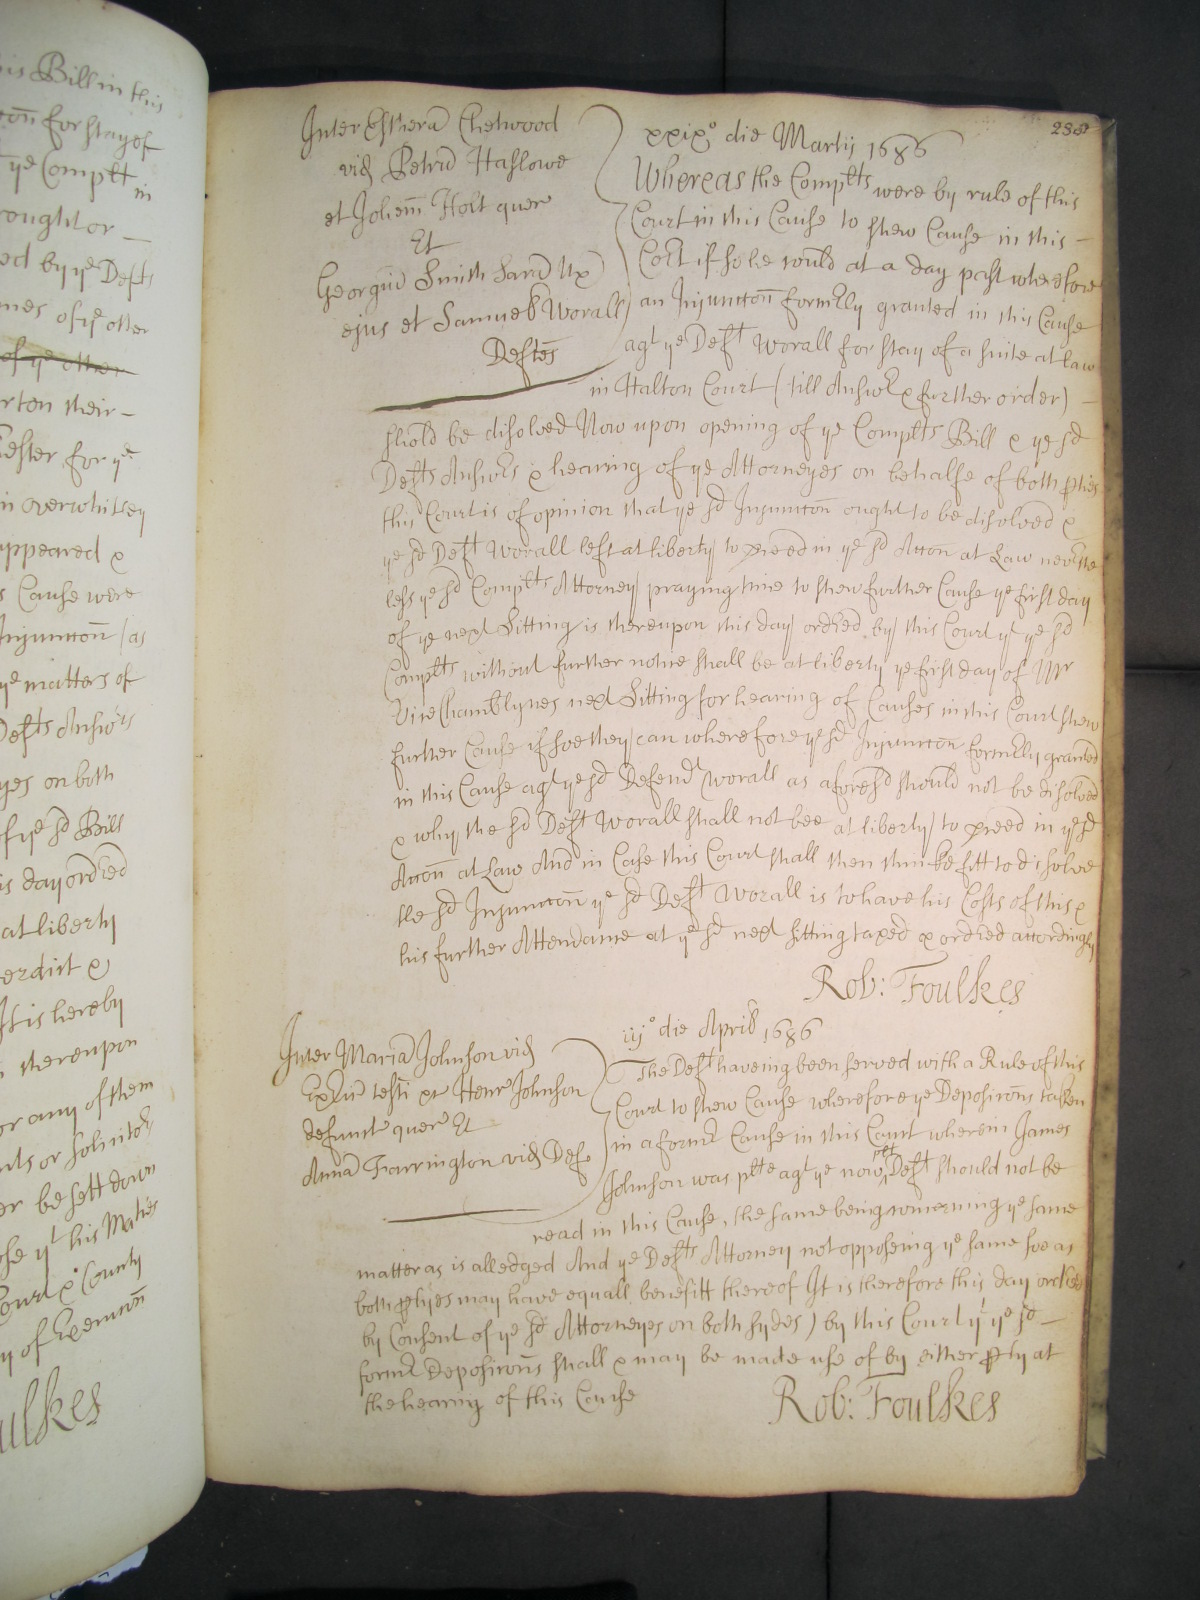 is Bill in this
con for stay of
ye Complt in
rought or —
ed by ye Defts
mes of ye other
of ye other
rton their —
hester for ye
in overwhitley
appeared &
s Cause were
Injunccon (as
ye matters of
Defts Answrs
yes on both
f ye sd Bill
is day ordred
at liberty
erdict &
It is hereby
thereupon
or any of them
nts or solicitor
er be sett down
se yt his Maties
Court & County
y of Execucon
ulkes
238
Inter Esthera Chetwood
vid Petru Haslowe
et Johem Holt quer
Et
Georgiu Smith Sara Ux
ejus et Samuel Worall
Deftes
xxixo die Martij 1686
Whereas the Complts were by rule of this
Court in this Cause to shew Cause in this —
Cort if so he would at a day past wherefore
an Injunccon formrly granted in this Cause
agt ye Deft Worall for stay of a suite at law
in Halton Court (till Answr & further order) —
shold be disolved Now upon opening of ye Complts Bill & ye sd
Defts Answrs & hearing of ye Attorneyes on behalfe of both pties
this Court is of opinion that ye sd Injunccon ought to be disolved &
ye sd Deft Worall left at liberty to pceed in ye sd Accon at Law nevrthe
less ye sd Complts Attorney praying time to shew further Cause ye first day
of ye next Sitting is thereupon this day ordred by this Court yt ye sd
Complts without further notice shall be at liberty ye first day of Mr
Vice Chamblynes next Sitting for hearing of Causes in this Court shew
further Cause if soe they can wherefore ye sd Injunccon formrly granted
in this Cause agt ye sd Defendt Worall as aforesd should not be disolved
& why the sd Deft Worall shall not bee at liberty to pceed in ye sd
Accon at Law And in Case this Court shall then thinke fitt to disolve
the sd Injunccon ye sd Deft Worall is to have his Costs of this &
his further Attendance at ye sd next sitting taxed & ordred accordingly
Rob: Foulkes
Inter Maria Johnson vid
Exturi testi Henr Johnson
defunct quer Et
Anna Farrington vid Def
iijo die April 1686
The Deft haveing been served with a Rule of this
Court to shew Cause wherefore ye Deposicons taken
in a formr Cause in this Court wherein James
Johnson was plte agt ye now Deft should not be
read in this Cause, the same being concerning ye same
matter as is alledged And ye Defts Attorney not opposeing ye same soe as
both ptyes may have equall benefitt thereof It is therefore this day ordred
by Consent of ye sd Attorneyes on both sydes) by this Court yt ye sd —
formr deposicons shall & may be made use of by either pty at
the hearing of this Cause
Rob: Foulkes